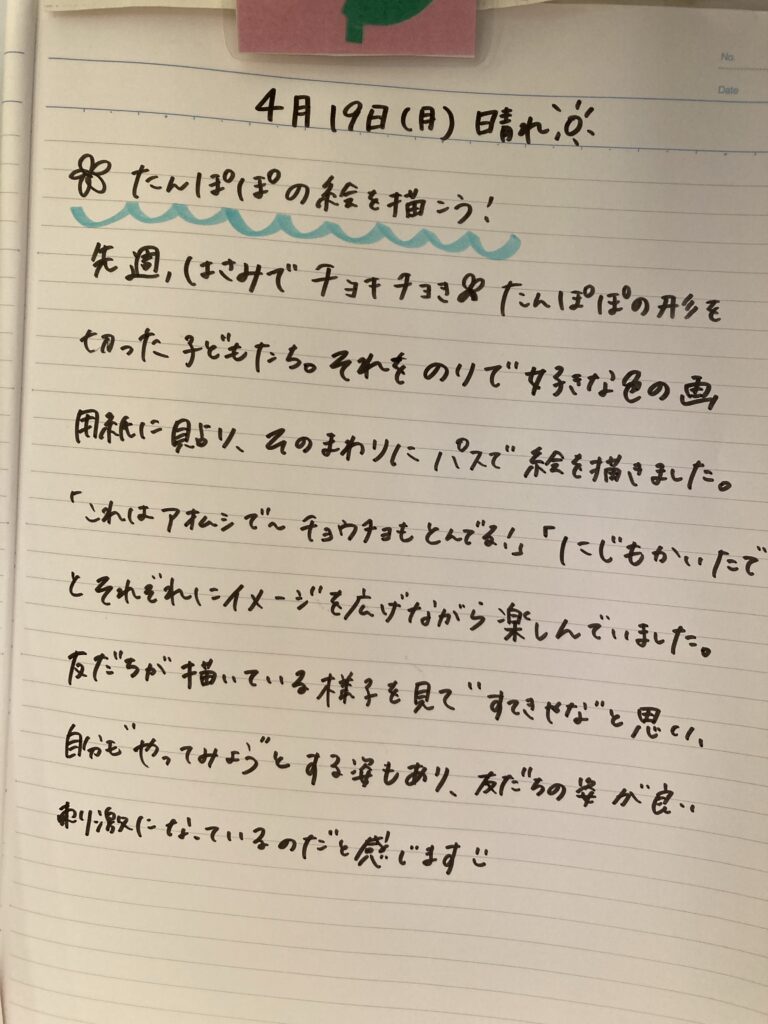 No.
Date
4月19日(月) 晴れ
たんぽぽの絵を描こう!
先週,はさみで チョキチョき たんぽぽの形を
切った子どもたち。それを のりで 好きな色の画
用紙に貼り、そのまわりに パスで 絵を描きました。
「これは アオムシで〜 チョウチョも とんでる!」「にじもかいたで
とそれぞれにイメージを広げながら 楽しんでいました。
友だちが 描いている 様子を見て "すてきやな"と思い、
自分も"やってみよう"と する姿もあり、友だちの姿 が良い
刺激になっているのだと感じます